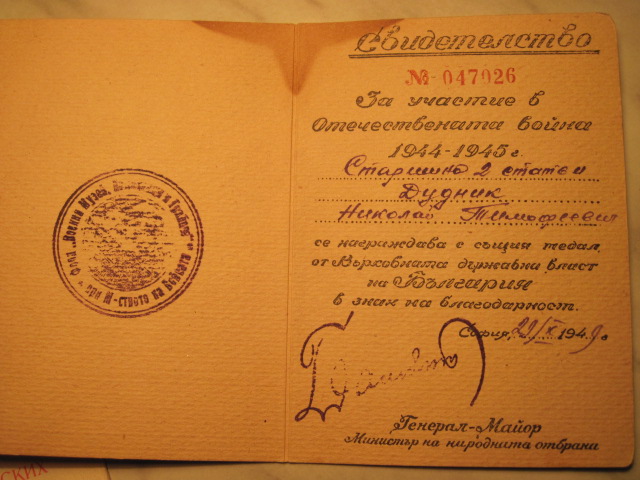 Свидетелство
№ 047026
За участие в
Отечествената война
1944-1945 г.
Старшина 2 статьи
Дудник
Николай Тимофеевич
се награждава с същия медал,
от Върховната държавна власт
на България
в знак на благодарност.
София, 29/X 1949 г
Генерал-Майор
Министър на народната отбрана
Фонд „Военни Музеи,
при М-ството на Войната
ских